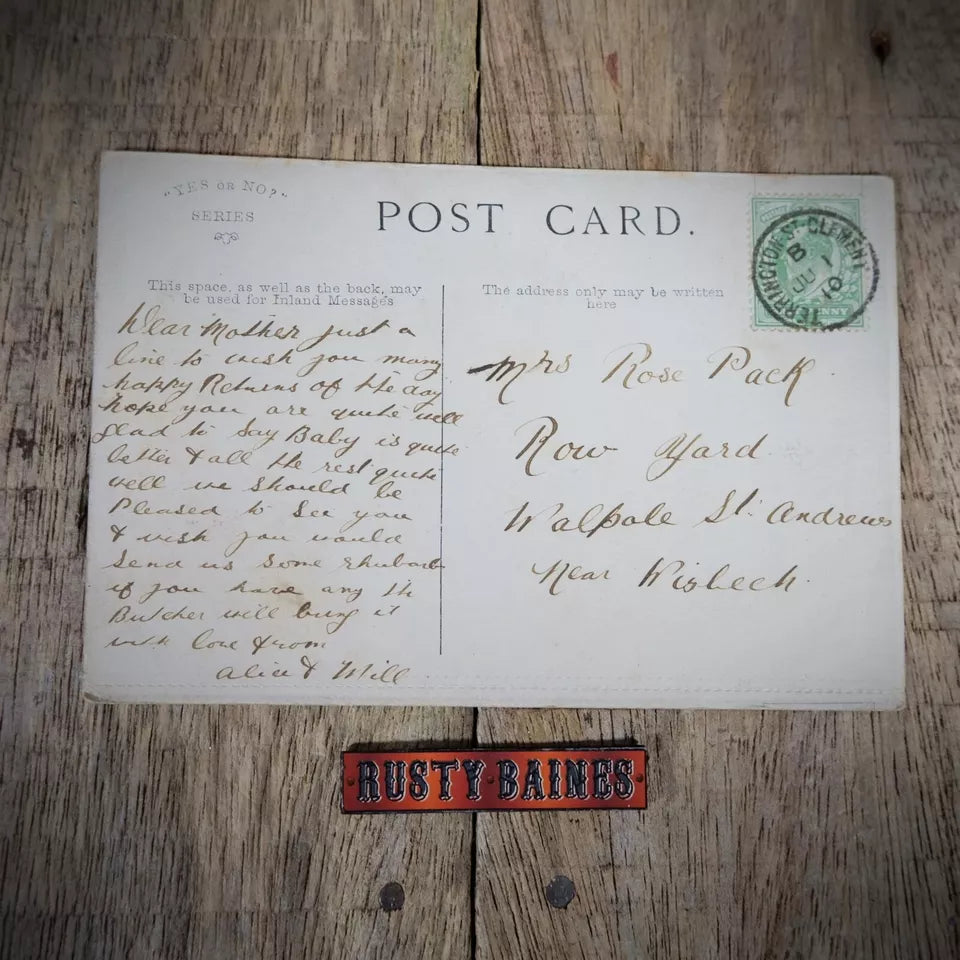 "YES OR NO?"
SERIES
POST CARD.
TERRINGTON·ST·CLEMENT
B
JU 1
10
This space, as well as the back, may
be used for Inland Messages
The address only may be written
here
Dear Mother just a
line to wish you many
happy Returns of the day
hope you are quite well
glad to say Baby is quite
better & all the rest quite
well we should be
Pleased to see you
& wish you would
send us some rhubarb
if you have any th
Butcher will bring it
with love from
Alice & Will
Mrs Rose Pack
Row Yard
Walpole St. Andrews
Near Wisbech.
RUSTY·BAINES